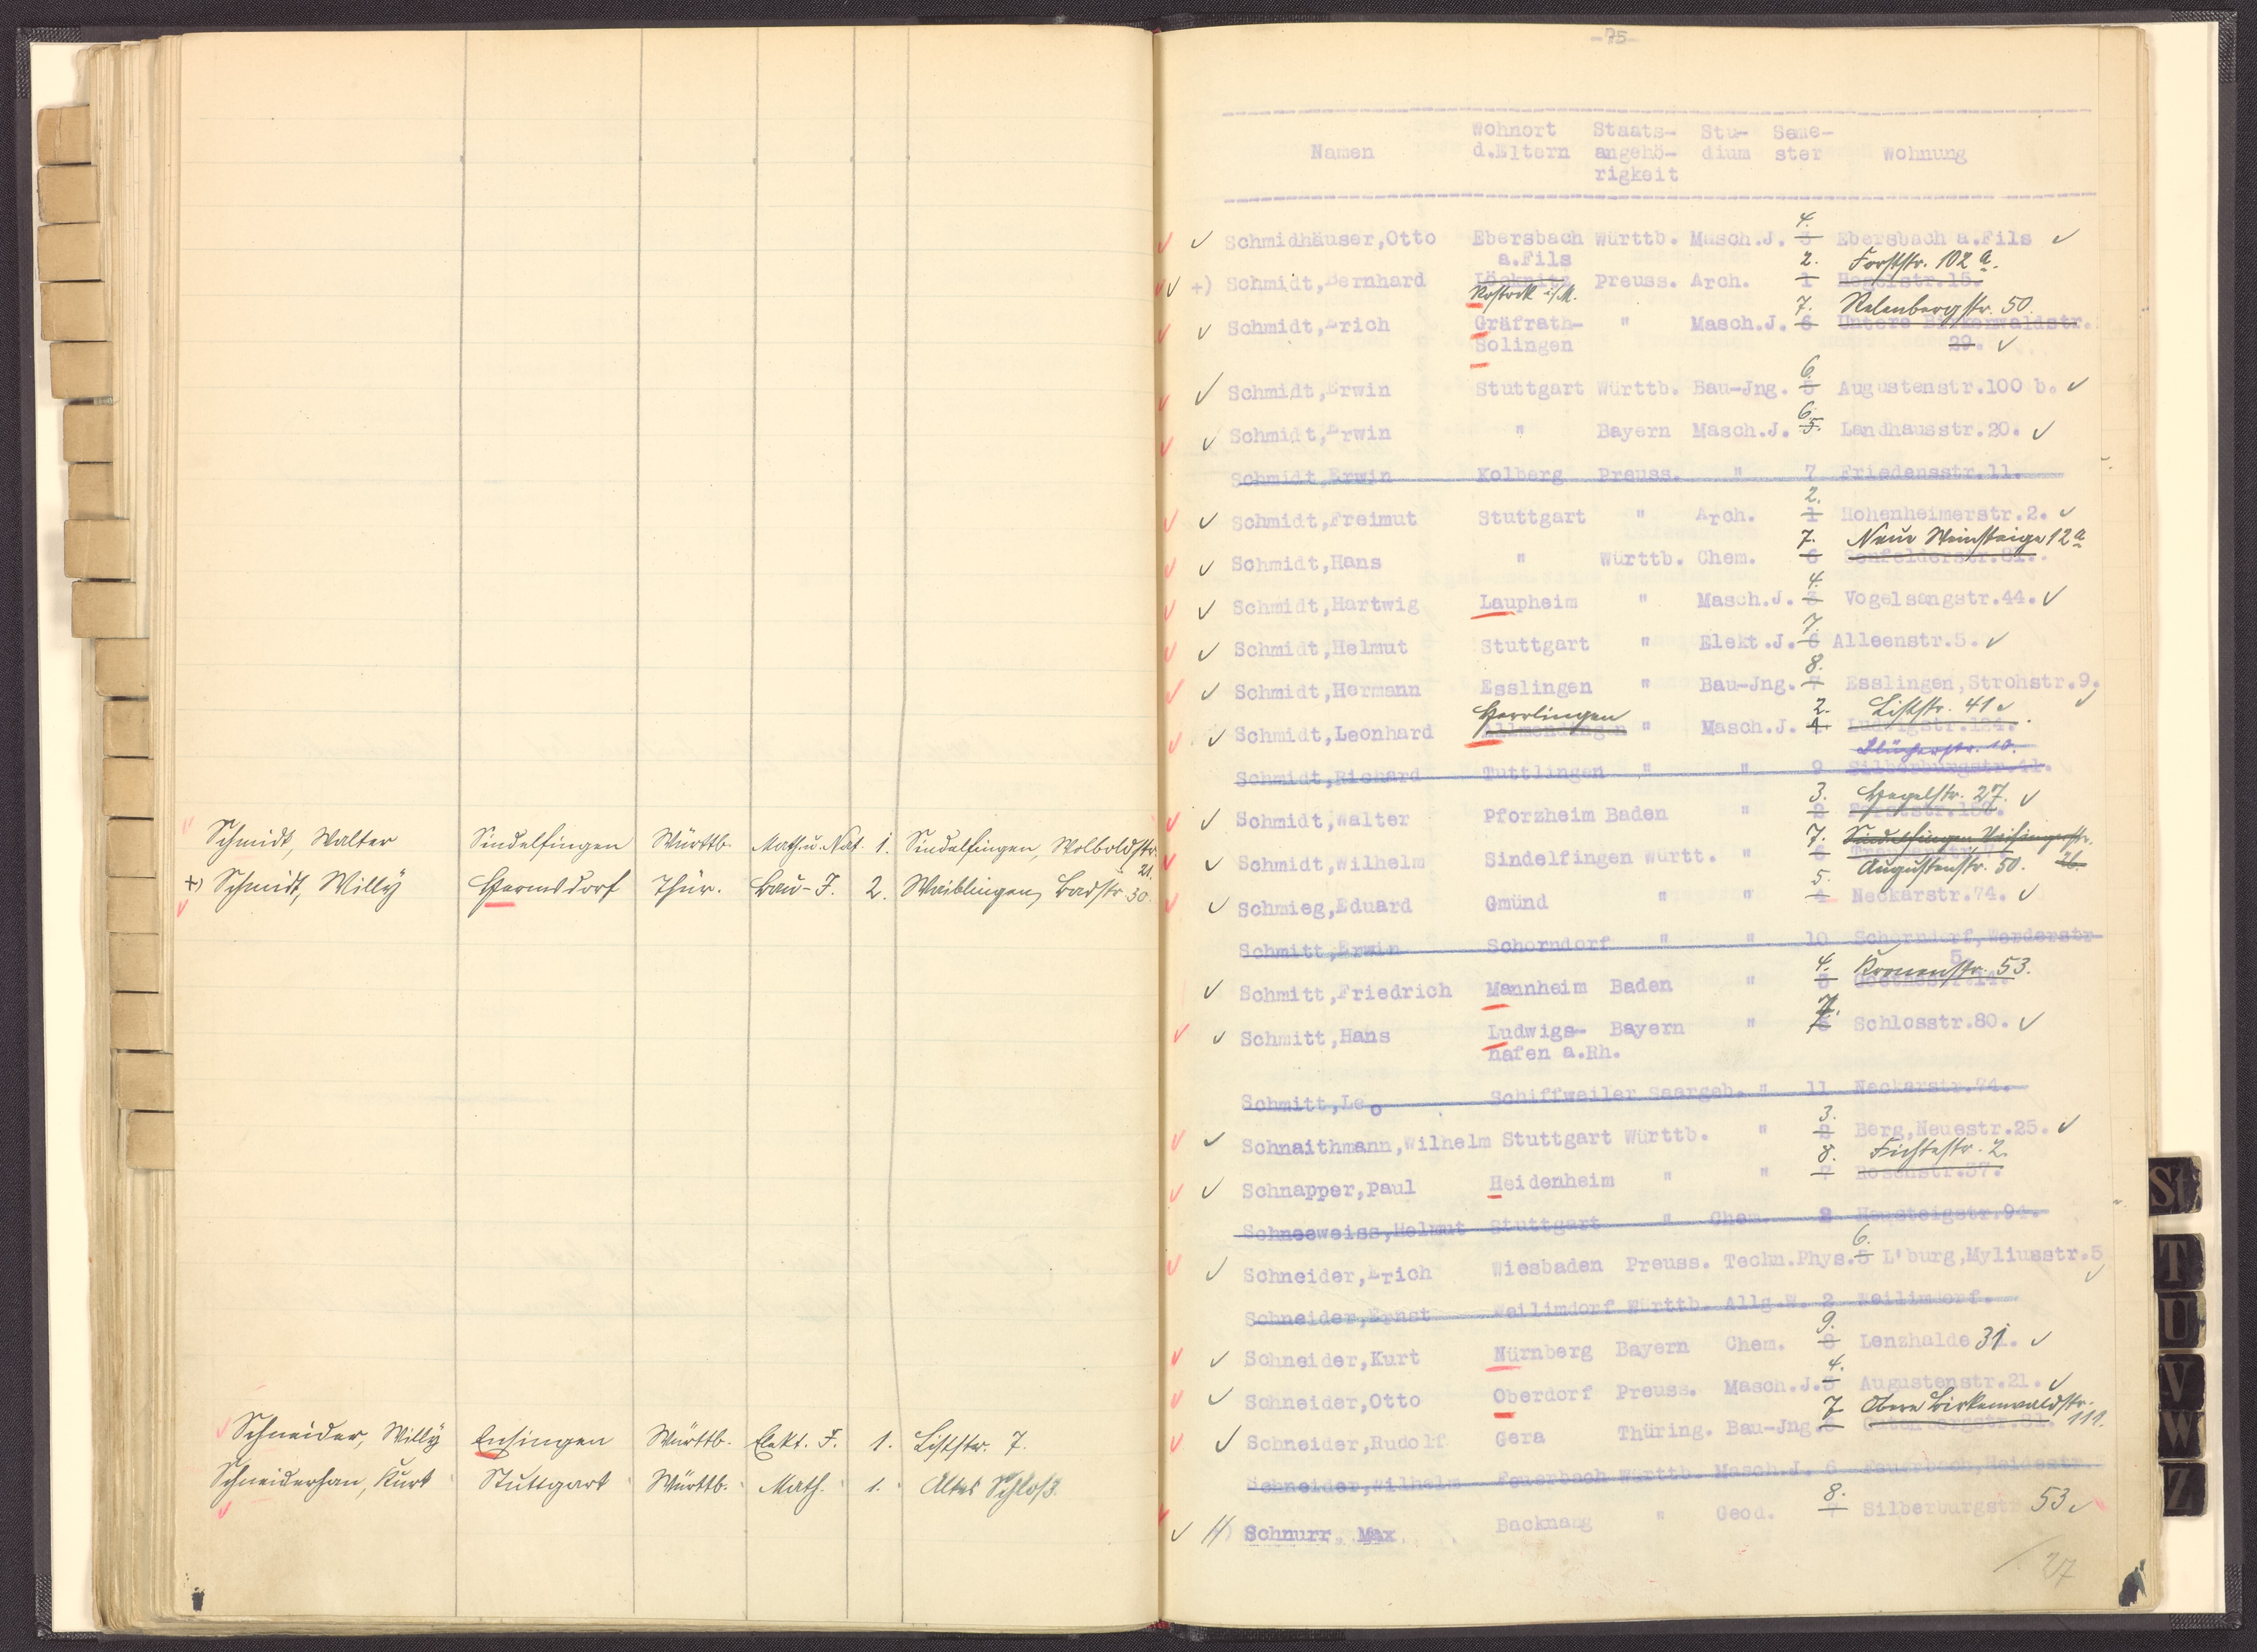 Schmidt, Walter Sindelfingen Württb. Math. u. Nat. 1. Sindelfingen, Wolboldstr. 21.
+) Schmidt, Willy Hermsdorf Thür. Bau-J. 2. Waiblingen, Badstr. 30.
Schneider, Willy Ensingen Württb. Elekt. J. 1. Liststr. 7.
Schneiderhan, Kurt Stuttgart Württb. Math. 1. Altes Schloß.
-75-
Wohnort Staats- Stu- Seme-
Namen d.Eltern angehö- dium ster Wohnung
rigkeit
4.
Schmidhäuser,Otto Ebersbach Württb. Masch.J. 3 Ebersbach a.Fils
a.Fils 2. Forststr. 102 a.
+) Schmidt,Bernhard Löcknitz Preuss. Arch. 1 Hegelstr.15.
Rostock i/M. 7. Relenbergstr. 50.
Schmidt,Erich Gräfrath- " Masch.J. 6 Untere Birkenwaldstr.
Solingen 29.
6.
Schmidt,Erwin Stuttgart Württb. Bau-Jng. 5 Augustenstr.100 b.
6.
Schmidt,Erwin " Bayern Masch.J. 5. Landhausstr.20.
Schmidt,Erwin Kolberg Preuss. " 7 Friedensstr.11.
2.
Schmidt,Freimut Stuttgart " Arch. 1 Hohenheimerstr.2.
7. Neue Weinsteige 12 a
Schmidt,Hans " Württb. Chem. 6 Senfelderstr.81.
4.
Schmidt,Hartwig Laupheim " Masch.J. 3 Vogelsangstr.44.
7.
Schmidt,Helmut Stuttgart " Elekt.J. 6 Alleenstr.5.
8.
Schmidt,Hermann Esslingen " Bau-Jng. 7 Esslingen,Strohstr.9.
Herrlingen 2. Liststr. 41
Schmidt,Leonhard Allmendingen " Masch.J. 1 Ludwigstr.124.
Blücherstr. 10.
Schmidt,Richard Tuttlingen " " 9 Silberburgstr.41.
3. Hegelstr. 27.
Schmidt,Walter Pforzheim Baden " 2 Forststr.180.
7. Sindelfingen
Schmidt,Wilhelm Sindelfingen Württ. " 6
5. Augustenstr. 50. 26.
Schmieg,Eduard Gmünd " " 4 Neckarstr.74.
Schmitt,Erwin Schorndorf " " 10 Schorndorf,Werderstr
5
4. Kronenstr. 53.
Schmitt,Friedrich Mannheim Baden " 3 Goethestr.14.
7.
Schmitt,Hans Ludwigs- Bayern " 6 Schlosstr.80.
hafen a.Rh.
Schmitt,Leo Schiffweiler Saargeb. " 11 Neckarstr.74.
3.
Schnaithmann,Wilhelm Stuttgart Württb. " 2 Berg,Neuestr.25.
8. Fichtestr. 2.
Schnapper,Paul Heidenheim " " 7 Rosenstr.37.
Schneeweiss,Helmut Stuttgart " Chem. 2 Haussteigstr.94.
6.
Schneider,Erich Wiesbaden Preuss. Techn.Phys. 5 L'burg,Myliusstr.5
Schneider,Ernst Weilimdorf Württb. Allg.W. 2 Weilimdorf.
9.
Schneider,Kurt Nürnberg Bayern Chem. 8 Lenzhalde 31.
4.
Schneider,Otto Oberdorf Preuss. Masch.J. 3 Augustenstr.21.
7 Obere Birkenwaldstr.
Schneider,Rudolf Gera Thüring. Bau-Jng. 6 Gutenbergstr.81. 111.
Schneider,Wilhelm Feuerbach Württb. Masch.J. 6 Feuerbach,Heidestr.
8.
H) Schnurr, Max, Backnang " Geod. 7 Silberburgstr 53
St
T
U
V
W
Z